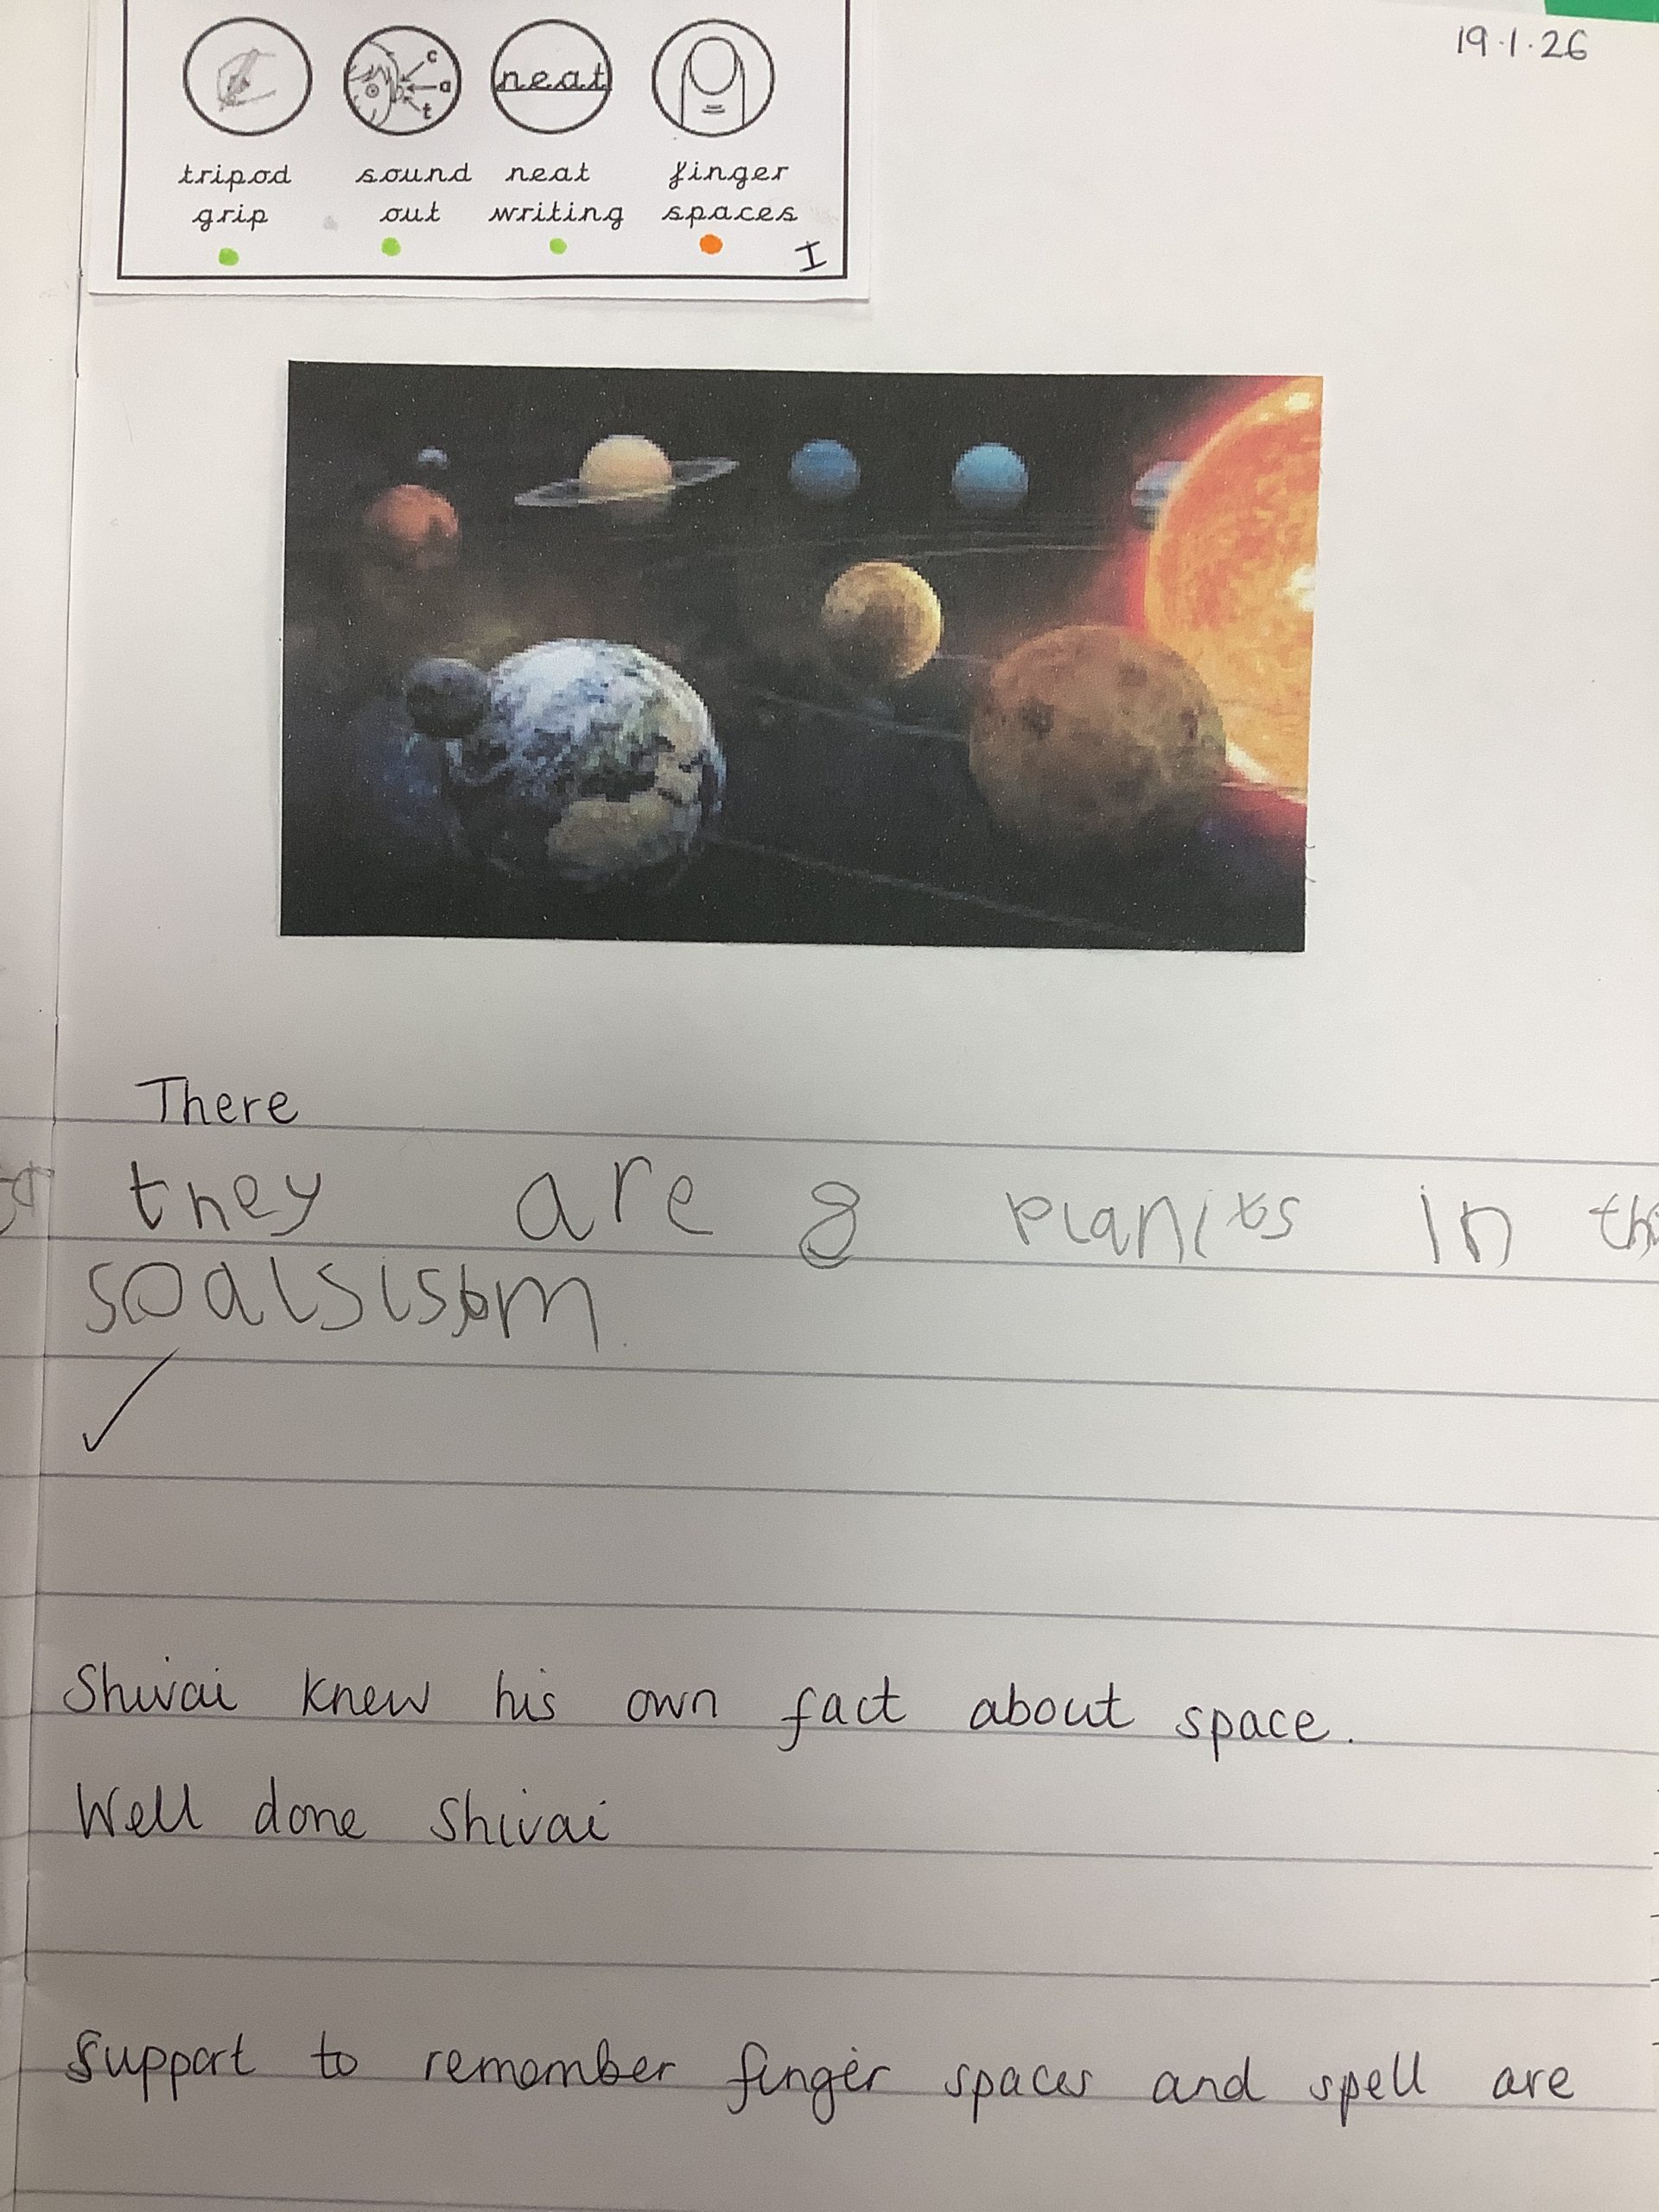 19.1.26
c
a
t
neat
tripod sound neat finger
grip out writing spaces
I
There
they are 8 planits in the
soalsisbm
Shivai knew his own fact about space.
Well done Shivai
Support to remember finger spaces and spell are